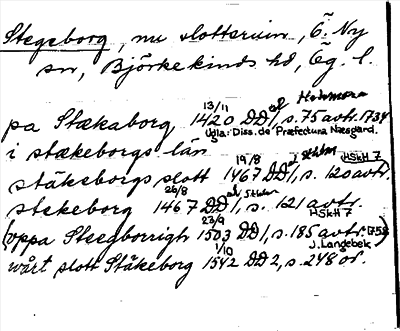 Stegeborg, nu slottsruin, Ö. Ny
sn, Björkekinds hd, Ög. l.
på Stækaborg 13/11 1420 DD1, s. 75 avtr. 1734 af
Ugla: Diss. de Præfectura Næsgard.
i stækeborgs län
stäkeborgs slott 19/8 1467 DD1, s. 120 avtr. HSkH 7
stekeborg 26/8 1467 DD1, s. 121 avtr. HSkH 7
(vppa Steegborrigh 23/9 1503 DD1, s. 185 avtr. 1758) J. Langebek
wårt slott Stäkeborg 1/10 1542 DD2, s. 248 or.